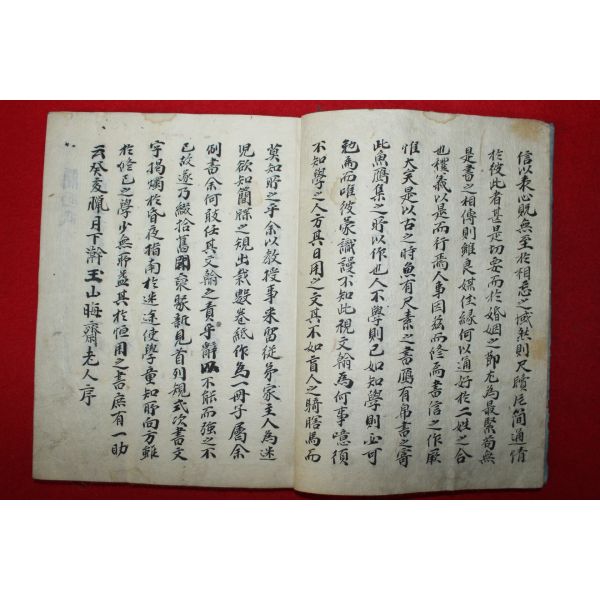 信以表心貺無至於相忘之域然則尺牘片簡通情
於彼此者甚是切要而於婚姻之節尤為最緊苟無
是書之相傳則雖良媒佳緣何以通好於二姓之合
也禮義以是而行焉人事因茲而修焉書信之作厥
惟大矣是以古之時魚有尺素之書鴈有帛書之寄
此魚鴈集之所以作也人不學則已如知學則必可
勉焉而唯彼蒙識謾不知此視文翰為何事噫須
不知學之人方其日用之文其不如盲人之騎瞎馬而
莫知所之乎余以教授事來留從弟家主人為迷
児欲知簡牘之規出栽數卷紙作為一冊子屬余
例書余何敢任其文翰之責乎辭以不能而強之不
已故遂乃綴拾舊聞裒聚新見首列規式次書文
字揭燭於昏夜指南於迷途使學童知所向方雖
於修己之學少無所益其於恒用之書庶有一助
云癸亥臘月下澣玉山晦齋老人序